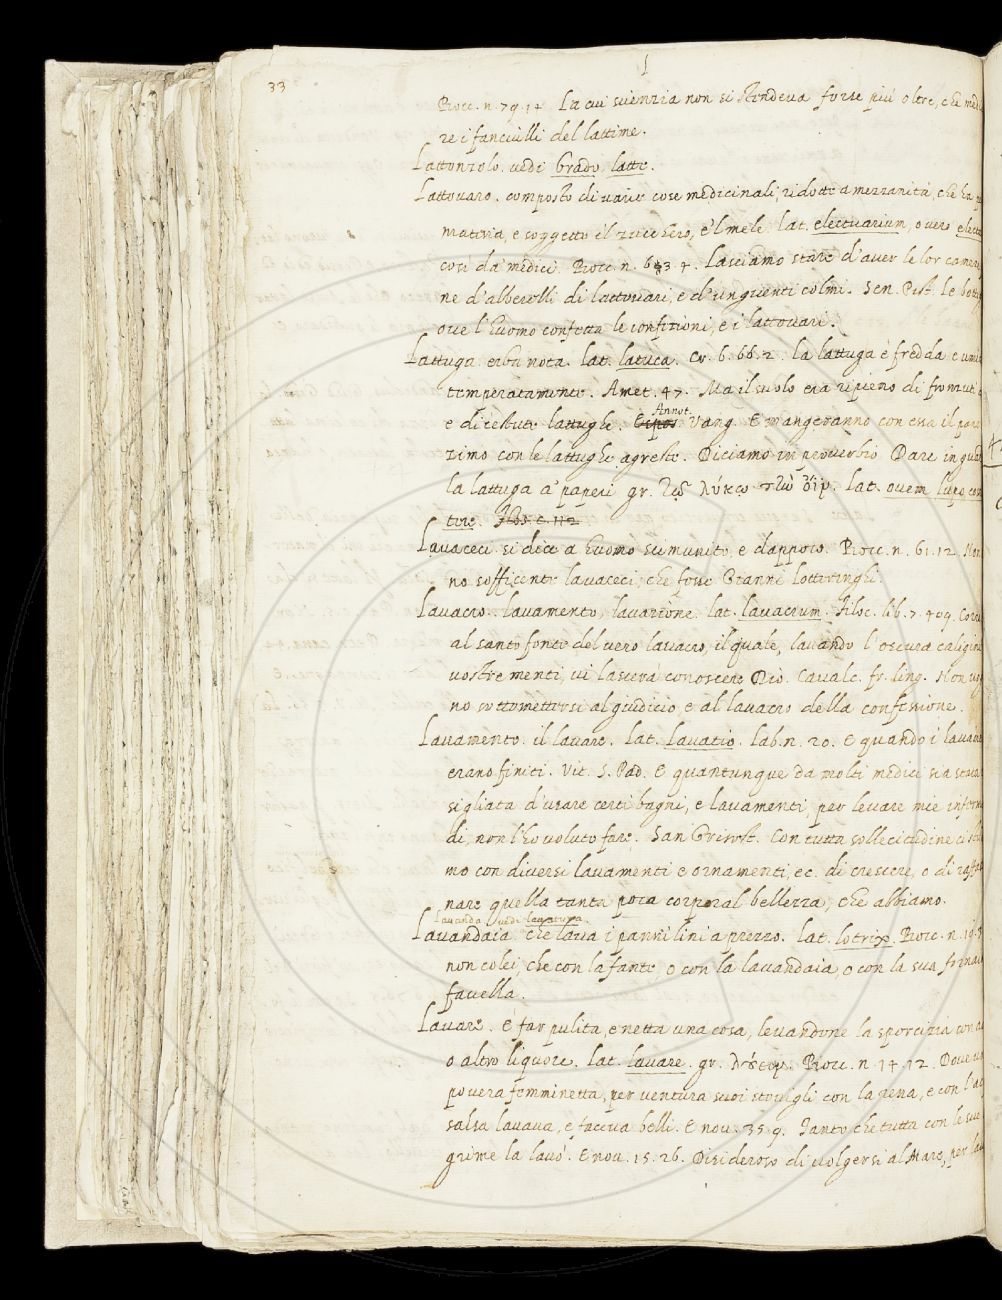 33
Bocc. n. 79. 14. La cui scienzia non si stendeva forse più oltre, che med
re i fanciulli del lattime.
Lattonzolo. vedi Brado latte.
Lattovaro. composto di varie cose medicinali, ridotte a mezzanità, che ha
mativa, e soggetto il zucchero, e 'l mele. lat. electuarium, overo elect
così da medici. Bocc. n. 4. Lasciamo stare d'aver le lor camere
ne d'alberelli di lattovari, e d'unguenti colmi. Sen. Pist. Le bott
ove l'huomo confetta le confezioni, e i lattovari.
Lattuga erba nota. lat. latuca. Cr. 6. 66. 2. la lattuga è fredda e umid
temperatamente. Amet. 47. Ma il suolo era ripieno di
e di cestute lattughe. Annot. Vang. E mangeranno con essa il pane
zimo con le lattughe agreste. Diciamo in proverbio Dare in guar
la lattuga a' paperi gr. λύκῳ τὴν ὄϊν. lat. ovem lupo com
tere. c. 112
Lavaceci. si dice a huomo scimunito, e dappoco. Bocc. n. 61. 12. Non
no sofficente lavaceci, che fosse Gianni Lotteringhi.
Lavacro. lavamento, lavazione. lat. lavacrum. Filoc. lib. 7. 409. Corre
al santo fonte del vero lavacro, il quale, lavando l'oscura caligine
vostre menti, vi lascerà conoscere Dio. Cavalc. fr. ling. Non vog
no sottomettersi al giudicio, e al lavacro della confessione.
Lavamento. il lavare. lat. lavatio. Lab. n. 20. E quando i lavame
erano finiti. Vit. S. Pad. E quantunque da molti medici sia stata
sigliata d'usare certi bagni, e lavamenti, per levare mie inferm
di, non l'ho voluto fare. San Grisost. Con tutta sollecitudine ci
mo con diversi lavamenti e ornamenti, ec. di crescere, o di raffa
nare quella tanta poca corporal bellezza, che abbiamo.
Lavanda vedi lavatura.
Lavandaia che lava i panni lini a prezzo. lat. lotrix. Bocc. n. 19.
non colei, che con la fante, o con la lavandaia, o con la sua fornaia
favella.
Lavare. E far pulita, e netta una cosa, levandone la sporcizia con ac
o altro liquore. lat. lavare. gr. λούειν. Bocc. n. 14. 12. Dove un
povera femminetta, per ventura suoi stovigli con la rena, e con l'ac
salsa lavava, e faceva belli. E nov. 35. 9. Tanto che tutta con le sue
grime la lavò. E nov. 15. 26. Disideroso di volgersi al Mare, per lav